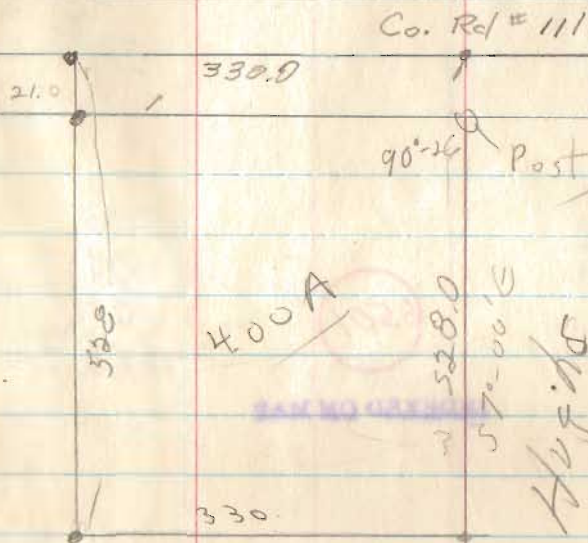 Co. Rd # 111
330.0
21.0
90°-26
Post
528
400A
528.0
S 1°-00'E
330